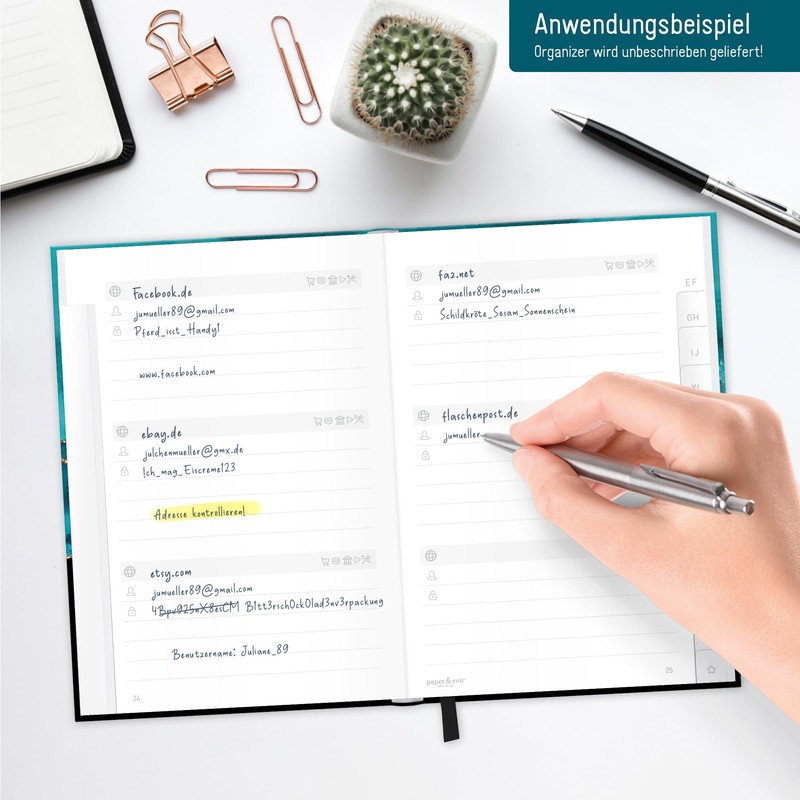 Anwendungsbeispiel
Organizer wird unbeschrieben geliefert!
Facebook.de
jumueller89@gmail.com
Pferd_isst_Handy1
www.facebook.com
ebay.de
julchenmueller@gmx.de
Ich_mag_Eiscreme123
Adresse kontrollieren!
etsy.com
jumueller89@gmail.com
4Bpv925nX8esCM B1tt3rsch0ck0lad3nv3rpackung
Benutzername: Juliane_89
24
faz.net
jumueller89@gmail.com
Schildkröte_Sesam_Sonnenschein
flaschenpost.de
jumueller
EF
GH
IJ
KL
paper&you
25